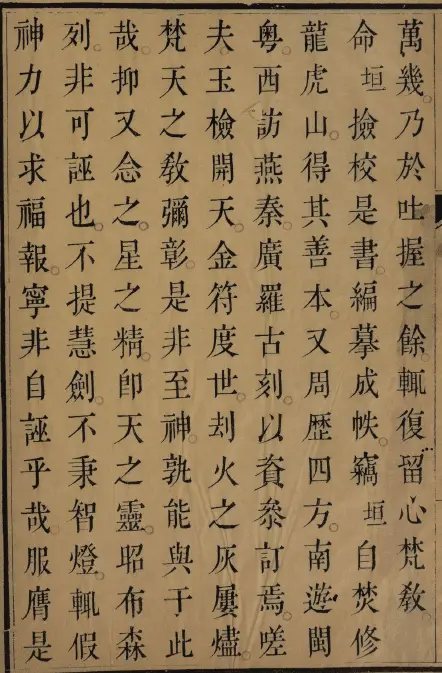 萬幾。乃於吐握之餘。輒復留心梵教。
命垣撿校是書。編摹成帙。竊垣自焚修
龍虎山。得其善本。又周歷四方。南遊閩
粵。西訪燕秦。廣羅古刻。以資叅訂焉。嗟
夫。玉檢開天。金符度世。刦火之灰屢燼。
梵天之教彌彰。是非至神。孰能與于此
哉。抑又念之。星之精。卽天之靈。昭布森
列。非可誣也。不提慧劍。不秉智燈。輒假
神力以求福報。寧非自誣乎哉。服膺是